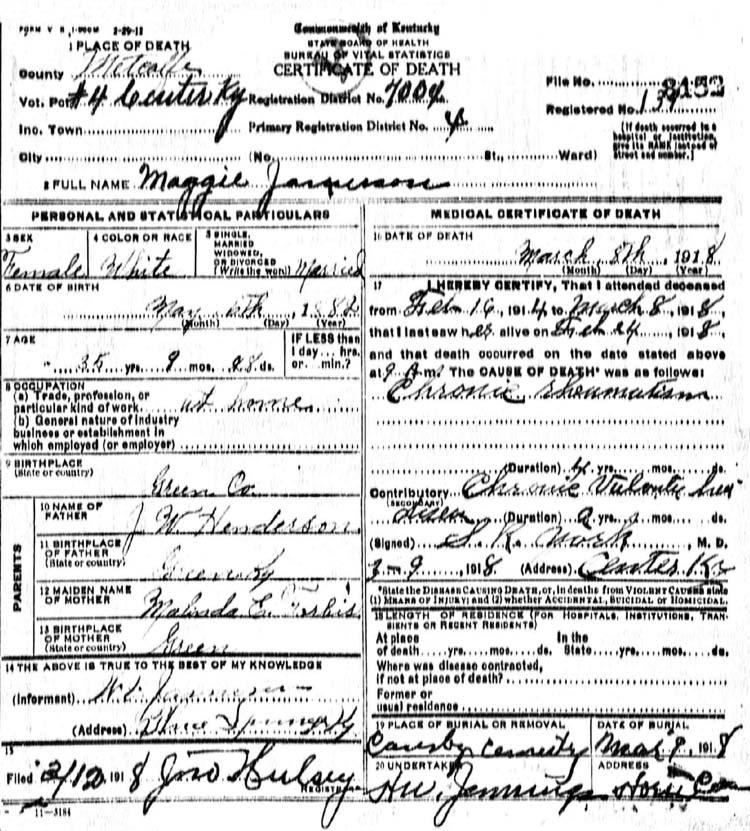 FORM V. S. 1-500M 2-29-12
Commonwealth of Kentucky
STATE BOARD OF HEALTH
BUREAU OF VITAL STATISTICS
CERTIFICATE OF DEATH
1 PLACE OF DEATH
County Metcalfe
File No. 8152
Vot. Pct. #4 Center Ky Registration District No. 7004
Registered No. 139
Inc. Town Primary Registration District No. 4
[If death occurred in a hospital or institution, give its NAME instead of street and number.]
City (No. St., Ward)
2 FULL NAME Maggie Jameson
PERSONAL AND STATISTICAL PARTICULARS
3 SEX Female
4 COLOR OR RACE White
5 SINGLE, MARRIED WIDOWED, OR DIVORCED (Write the word) Married
6 DATE OF BIRTH
May 6th, 1882
(Month) (Day) (Year)
7 AGE
35 yrs. 9 mos. 28 ds.
IF LESS than 1 day... hrs. or... min.?
8 OCCUPATION
(a) Trade, profession, or particular kind of work at home
(b) General nature of industry
business or establishment in
which employed (or employer)
9 BIRTHPLACE
(State or country)
Green Co
PARENTS
10 NAME OF FATHER J W Henderson
11 BIRTHPLACE OF FATHER (State or country) Green Ky
12 MAIDEN NAME OF MOTHER Malinda E. Forbis
13 BIRTHPLACE OF MOTHER (State or country) Green
14 THE ABOVE IS TRUE TO THE BEST OF MY KNOWLEDGE
(Informant)
(Address) Ky
15
Filed 3/12 1918 Jno Hulsey
REGISTRAR
11-3184
MEDICAL CERTIFICATE OF DEATH
16 DATE OF DEATH
March 8th, 1918
(Month) (Day) (Year)
17 I HEREBY CERTIFY, That I attended deceased
from Feb 16, 1914 to March 8, 1918,
that I last saw her alive on Feb 24, 1918,
and that death occurred on the date stated above
at 9 m. The CAUSE OF DEATH* was as follows:
Chronic rheumatism
(Duration) 4 yrs. mos. ds.
Contributory Chronic
(SECONDARY)
(Duration) 2 yrs. mos. ds.
(Signed) S. K. Work, M. D.
3-9, 1918 (Address) Center Ky
*State the DISEASE CAUSING DEATH, or, in deaths from VIOLENT CAUSES state
(1) MEANS OF INJURY; and (2) whether ACCIDENTAL, SUICIDAL or HOMICIDAL.
18 LENGTH OF RESIDENCE (FOR HOSPITALS, INSTITUTIONS, TRANSIENTS OR RECENT RESIDENTS)
At place In the
of death yrs. mos. ds. State yrs. mos. ds.
Where was disease contracted,
if not at place of death?
Former or
usual residence
19 PLACE OF BURIAL OR REMOVAL DATE OF BURIAL
Causby Cemetery Mar 9, 1918
20 UNDERTAKER ADDRESS
HW Jennings